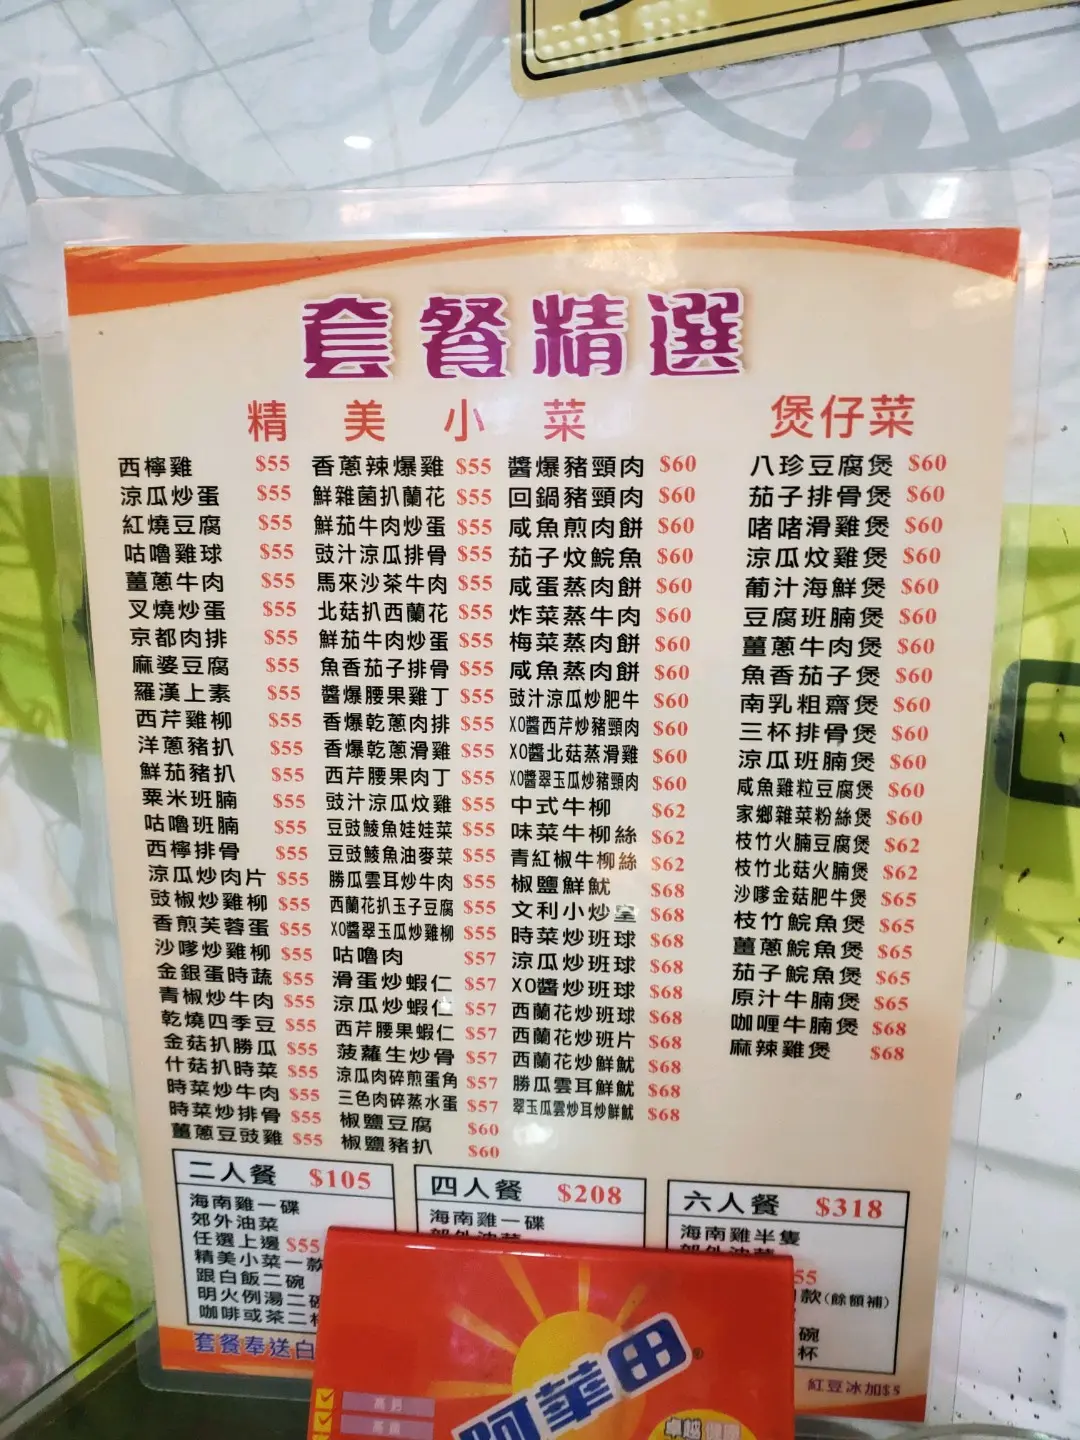 套餐精選
精美小菜
西檸雞 $55
涼瓜炒蛋 $55
紅燒豆腐 $55
咕嚕雞球 $55
薑蔥牛肉 $55
叉燒炒蛋 $55
京都肉排 $55
麻婆豆腐 $55
羅漢上素 $55
西芹雞柳 $55
洋蔥豬扒 $55
鮮茄豬扒 $55
粟米班腩 $55
咕嚕班腩 $55
西檸排骨 $55
涼瓜炒肉片 $55
豉椒炒雞柳 $55
香煎芙蓉蛋 $55
沙嗲炒雞柳 $55
金銀蛋時蔬 $55
青椒炒牛肉 $55
乾燒四季豆 $55
金菇扒勝瓜 $55
什菇扒時菜 $55
時菜炒牛肉 $55
時菜炒排骨 $55
薑蔥豆豉雞 $55
香蔥辣爆雞 $55
鮮雜菌扒蘭花 $55
鮮茄牛肉炒蛋 $55
豉汁涼瓜排骨 $55
馬來沙茶牛肉 $55
北菇扒西蘭花 $55
鮮茄牛肉炒蛋 $55
魚香茄子排骨 $55
醬爆腰果雞丁 $55
香爆乾蔥肉排 $55
香爆乾蔥滑雞 $55
西芹腰果肉丁 $55
豉汁涼瓜炆雞 $55
豆豉鯪魚娃娃菜 $55
豆豉鯪魚油麥菜 $55
勝瓜雲耳炒牛肉 $55
西蘭花扒玉子豆腐 $55
XO醬翠玉瓜炒雞柳 $55
咕嚕肉 $57
滑蛋炒蝦仁 $57
涼瓜炒蝦仁 $57
西芹腰果蝦仁 $57
菠蘿生炒骨 $57
涼瓜肉碎煎蛋角 $57
三色肉碎蒸水蛋 $57
椒鹽豆腐 $60
椒鹽豬扒 $60
醬爆豬頸肉 $60
回鍋豬頸肉 $60
咸魚煎肉餅 $60
茄子炆鯇魚 $60
咸蛋蒸肉餅 $60
炸菜蒸牛肉 $60
梅菜蒸肉餅 $60
咸魚蒸肉餅 $60
豉汁涼瓜炒肥牛 $60
XO醬西芹炒豬頸肉 $60
XO醬北菇蒸滑雞 $60
XO醬翠玉瓜炒豬頸肉 $60
中式牛柳 $62
味菜牛柳絲 $62
青紅椒牛柳絲 $62
椒鹽鮮魷 $68
文利小炒皇 $68
時菜炒班球 $68
涼瓜炒班球 $68
XO醬炒班球 $68
西蘭花炒班球 $68
西蘭花炒班片 $68
西蘭花炒鮮魷 $68
勝瓜雲耳鮮魷 $68
翠玉瓜雲炒耳炒鮮魷 $68
煲仔菜
八珍豆腐煲 $60
茄子排骨煲 $60
啫啫滑雞煲 $60
涼瓜炆雞煲 $60
葡汁海鮮煲 $60
豆腐班腩煲 $60
薑蔥牛肉煲 $60
魚香茄子煲 $60
南乳粗齋煲 $60
三杯排骨煲 $60
涼瓜班腩煲 $60
咸魚雞粒豆腐煲 $60
家鄉雜菜粉絲煲 $60
枝竹火腩豆腐煲 $62
枝竹北菇火腩煲 $62
沙嗲金菇肥牛煲 $65
枝竹鯇魚煲 $65
薑蔥鯇魚煲 $65
茄子鯇魚煲 $65
原汁牛腩煲 $65
咖喱牛腩煲 $68
麻辣雞煲 $68
二人餐 $105
海南雞一碟
郊外油菜
任選上邊 $55
精美小菜一款
跟白飯二碗
明火例湯二碗
咖啡或茶二杯
四人餐 $208
海南雞一碟
郊外油菜
六人餐 $318
海南雞半隻
郊外油菜
55
款(餘額補)
碗
杯
套餐奉送白
紅豆冰加$5
阿華田
高鈣
卓越